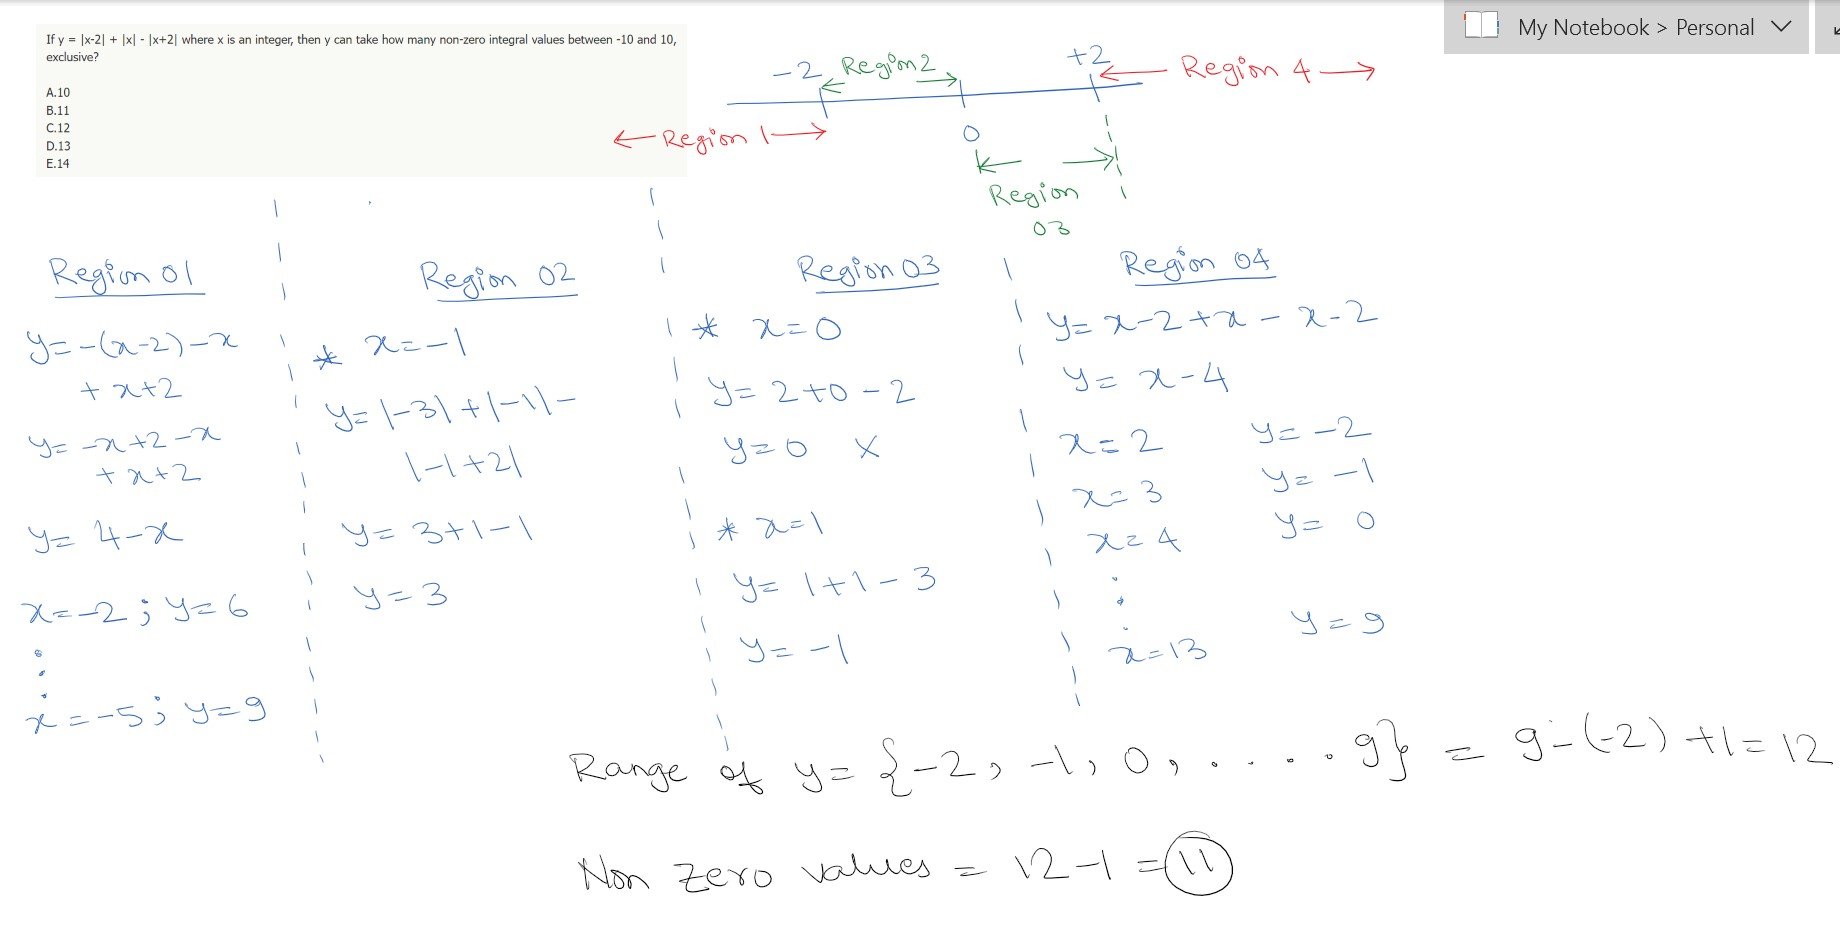 My Notebook > Personal
If y = |x-2| + |x| - |x+2| where x is an integer, then y can take how many non-zero integral values between -10 and 10,
exclusive?
A.10
B.11
C.12
D.13
E.14
-2
Region 2
+2
Region 4
Region 1
0
Region
03
Region 01
y=-(x-2)-x
+x+2
y=-x+2-x
+x+2
y=4-x
x=-2; y=6
x=-5; y=9
Region 02
* x=-1
y=|-3|+|-1|-
|-1+2|
y=3+1-1
y=3
Region 03
* x=0
y=2+0-2
y=0 x
* x=1
y=1+1-3
y=-1
Region 04
y=x-2+x-x-2
y=x-4
x=2 y=-2
x=3 y=-1
x=4 y=0
x=13 y=9
Range of y={-2,-1,0,.....9} = 9-(-2)+1=12
Non zero values = 12-1=11